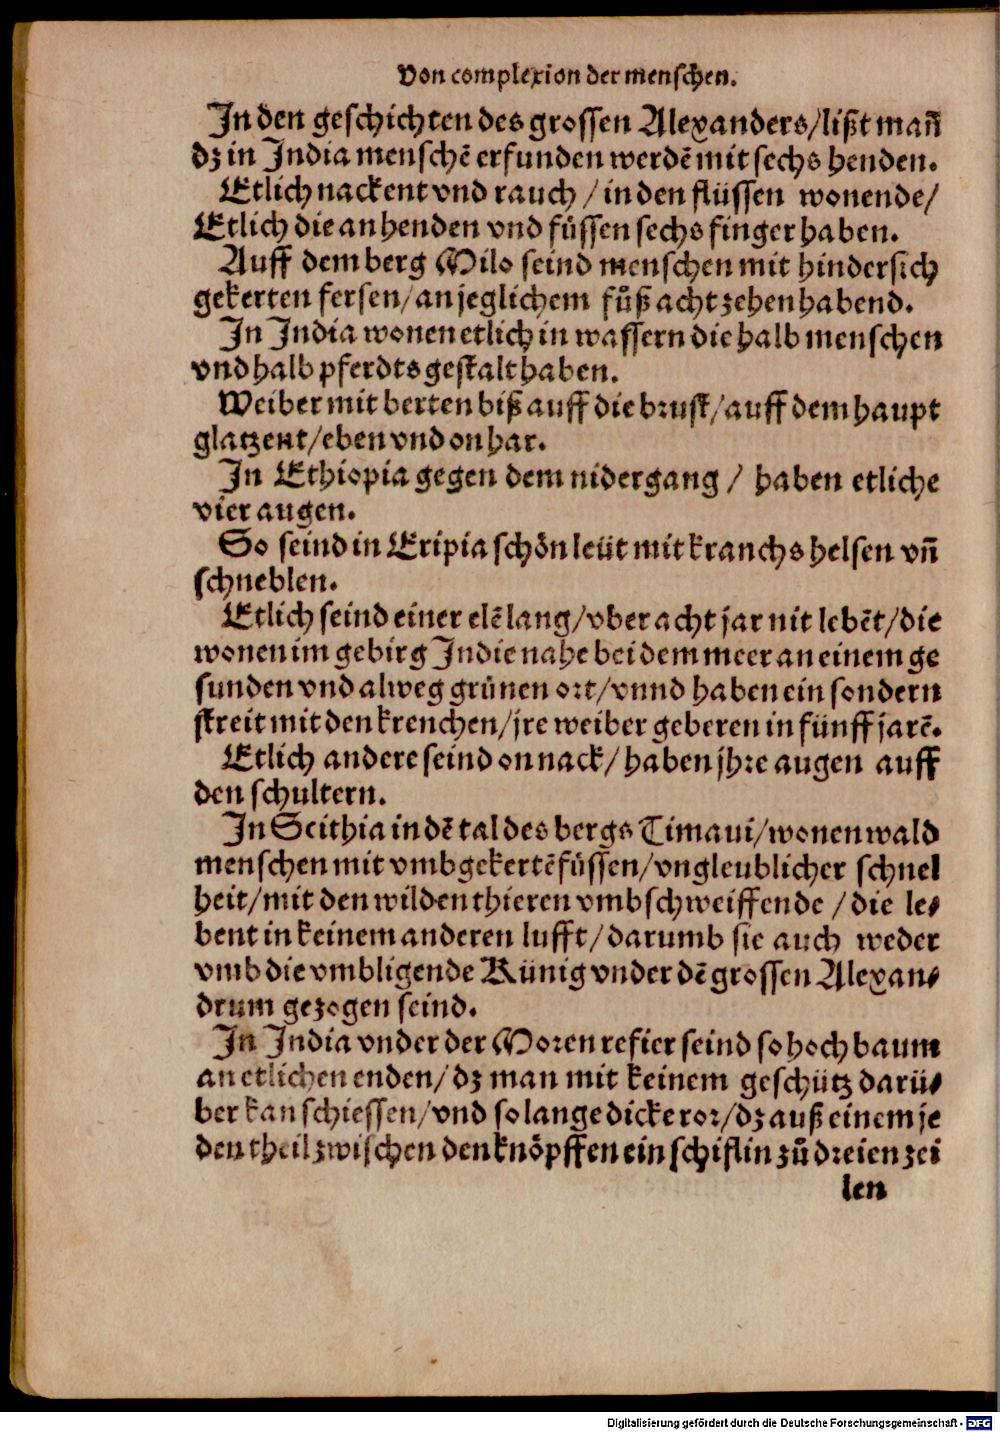 Von complexion der menschen.
In den geschichten des grossen Alexanders/lißt mañ
dz in India menschē erfunden werdē mit sechs henden.
Etlich nackent vnd rauch / in den flüssen wonende/
Etlich die an henden vnd füssen sechs finger haben.
Auff dem berg Milo seind menschen mit hindersich
gekerten fersen/an jeglichem fůß acht zehen habend.
In India wonen etlich in wassern die halb menschen
vnd halb pferdts gestalt haben.
Weiber mit berten biß auff die brust/auff dem haupt
glatzent/eben vnd on har.
In Ethiopia gegen dem nidergang / haben etliche
vier augen.
So seind in Eripia schön leüt mit kranchs helsen vñ
schneblen.
Etlich seind einer elē lang/vber acht jar nit lebēt/die
wonen im gebirg Indie nahe bei dem meer an einem ge
sunden vnd alweg grünen ort/vnnd haben ein sondern
streit mit den krenchen/jre weiber geberen in fünff jarē.
Etlich andere seind on nack/ haben jhre augen auff
den schultern.
In Scithia in dē tal des bergs Timaui/wonen wald
menschen mit vmbgekertē füssen/vngleublicher schnel
heit/mit den wilden thieren vmbschweiffende /die le⸗
bent in keinem anderen lufft/darumb sie auch weder
vmb die vmbligende Künig vnder dē grossen Alexan⸗
drum gezogen seind.
In India vnder der Moren refier seind so hoch baum
an etlichen enden/dz man mit keinem geschütz darü⸗
ber kan schiessen/vnd so lange dicke ror/dz auß einem je
den theil zwischen den knöpffen ein schiflin zů dreien zei
len
Digitalisierung gefördert durch die Deutsche Forschungsgemeinschaft - DFG